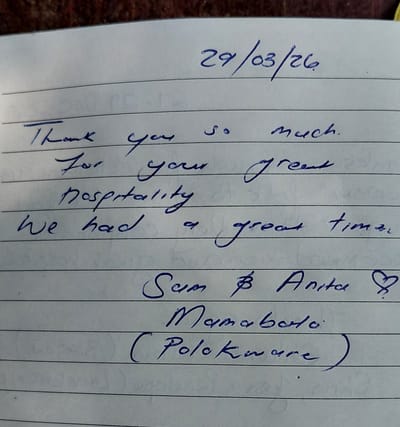 29/03/26
Thank you so much.
for your great
hospitality
We had a great time.
Sam & Anita ♡
Mamabolo
(Polokware)